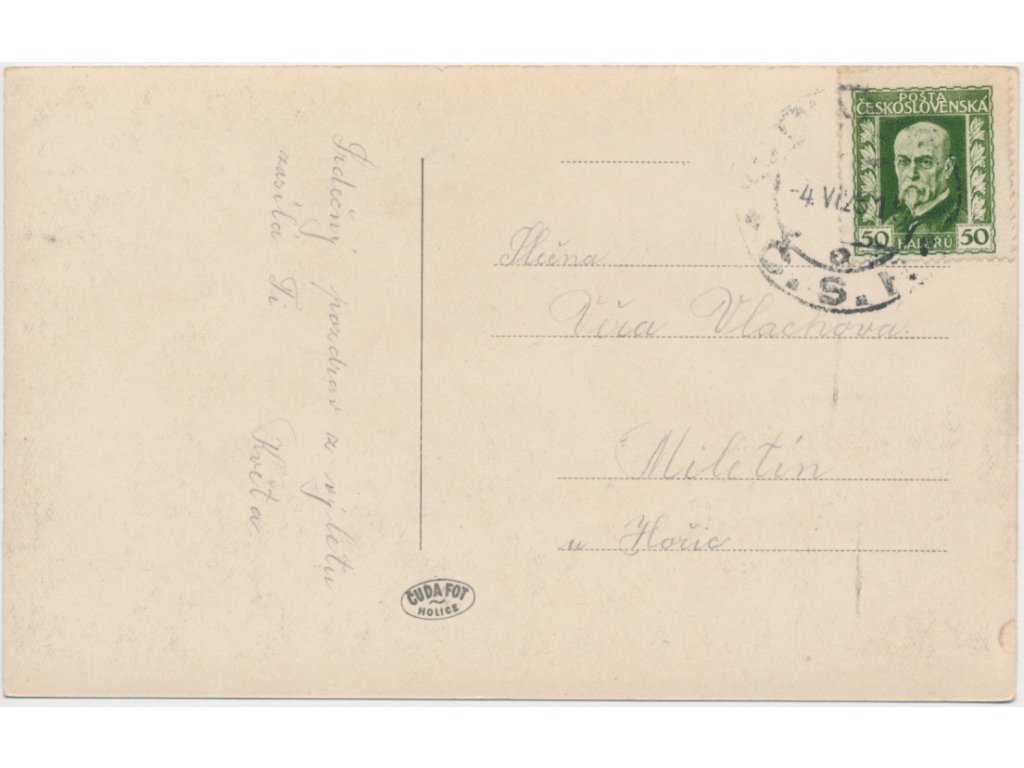 Srdečný pozdrav z výletu
zasílá Ti
Květa
POŠTA
ČESKOSLOVENSKA
50 HALÉŘŮ 50
-4.VI.28
Č.S.R.
Slečna
Věra Vlachova
Miletín
u Hořic
ČUDA FOT
HOLICE